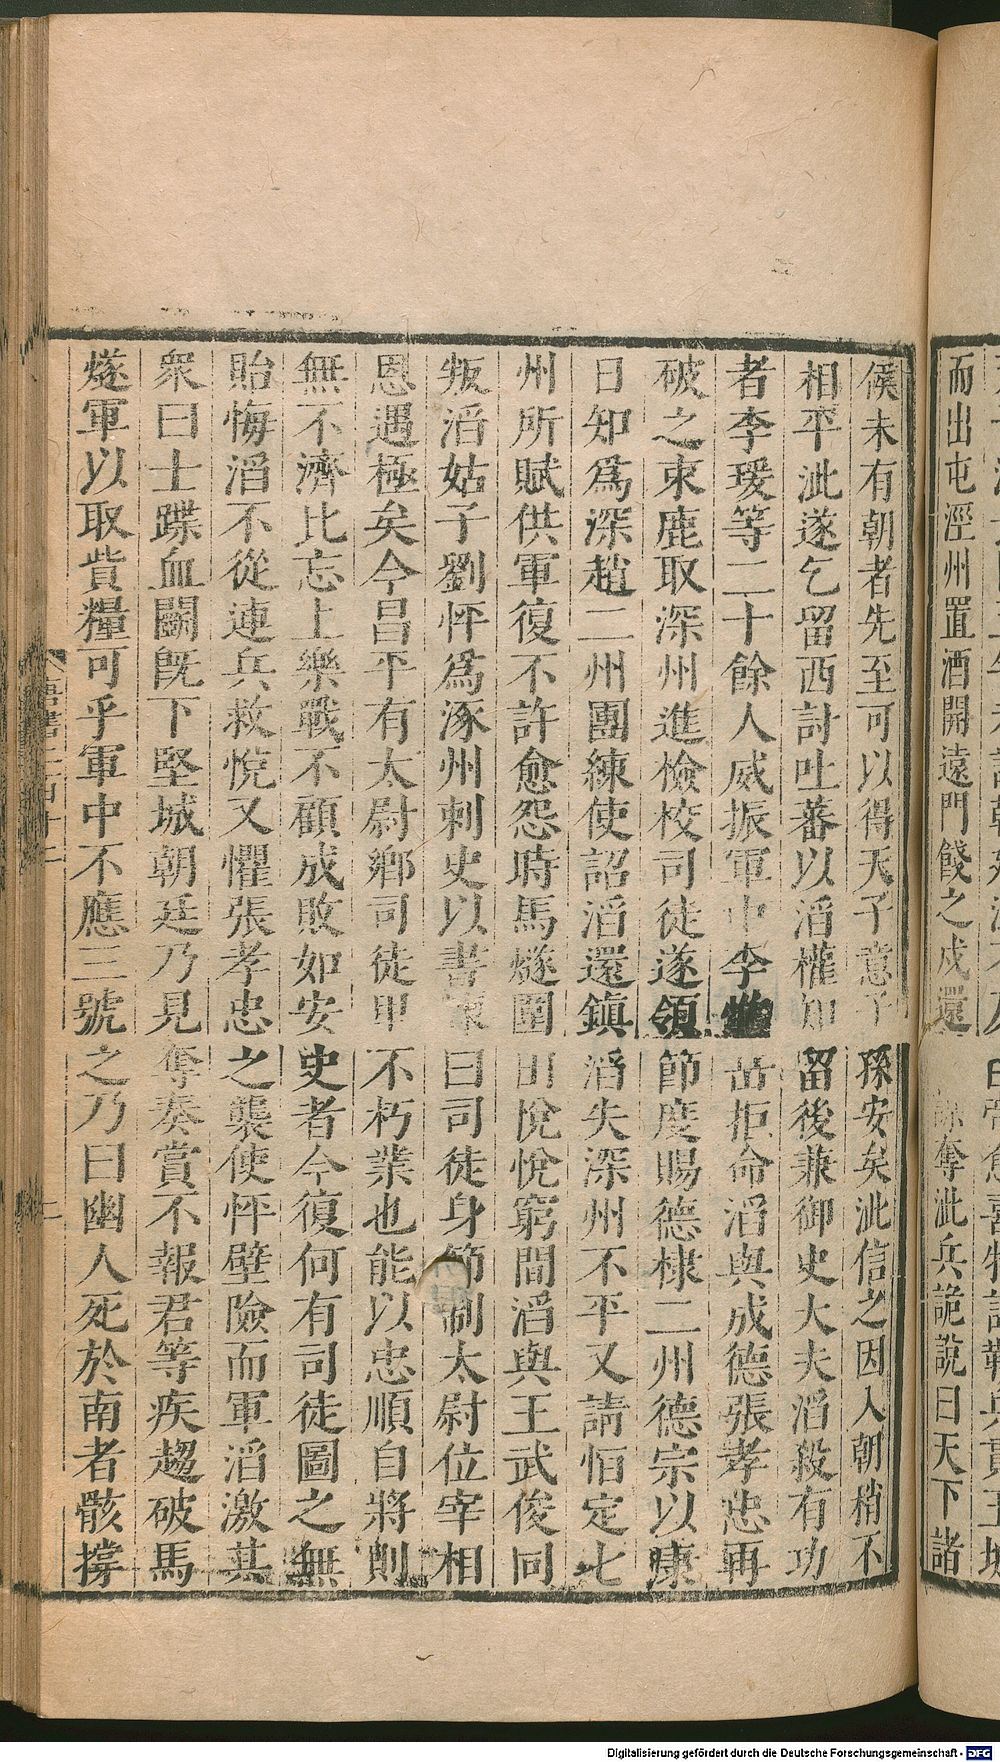 侯未有朝者先至可以得天子意子孫安矣泚信之因入朝稍不
相平泚遂乞留西討吐蕃以滔權知留後兼御史大夫滔殺有功
者李瑗等二十餘人威振軍中李惟岳拒命滔與成德張孝忠再
破之束鹿取深州進檢校司徒遂領節度賜德棣二州德宗以康
日知爲深趙二州團練使詔滔還鎮滔失深州不平又請恒定七
州所賦供軍復不許愈怨時馬燧圍田悅悅窮間滔與王武俊同
叛滔姑子劉怦爲涿州刺史以書諫曰司徒身節制太尉位宰相
恩遇極矣今昌平有太尉鄉司徒里不朽業也能以忠順自將則
無不濟比忘上樂戰不顧成敗如安史者今復何有司徒圖之無
貽悔滔不從連兵救悅又懼張孝忠之襲使怦壁險而軍滔激其
衆曰士蹀血鬭旣下堅城朝廷乃見奪奏賞不報君等疾趨破馬
燧軍以取貲糧可乎軍中不應三號之乃曰幽人死於南者骸撐
而出屯涇州置酒開遠門餞之戍還 奪泚兵詭說曰天下諸
Digitalisierung gefördert durch die Deutsche Forschungsgemeinschaft - DFG